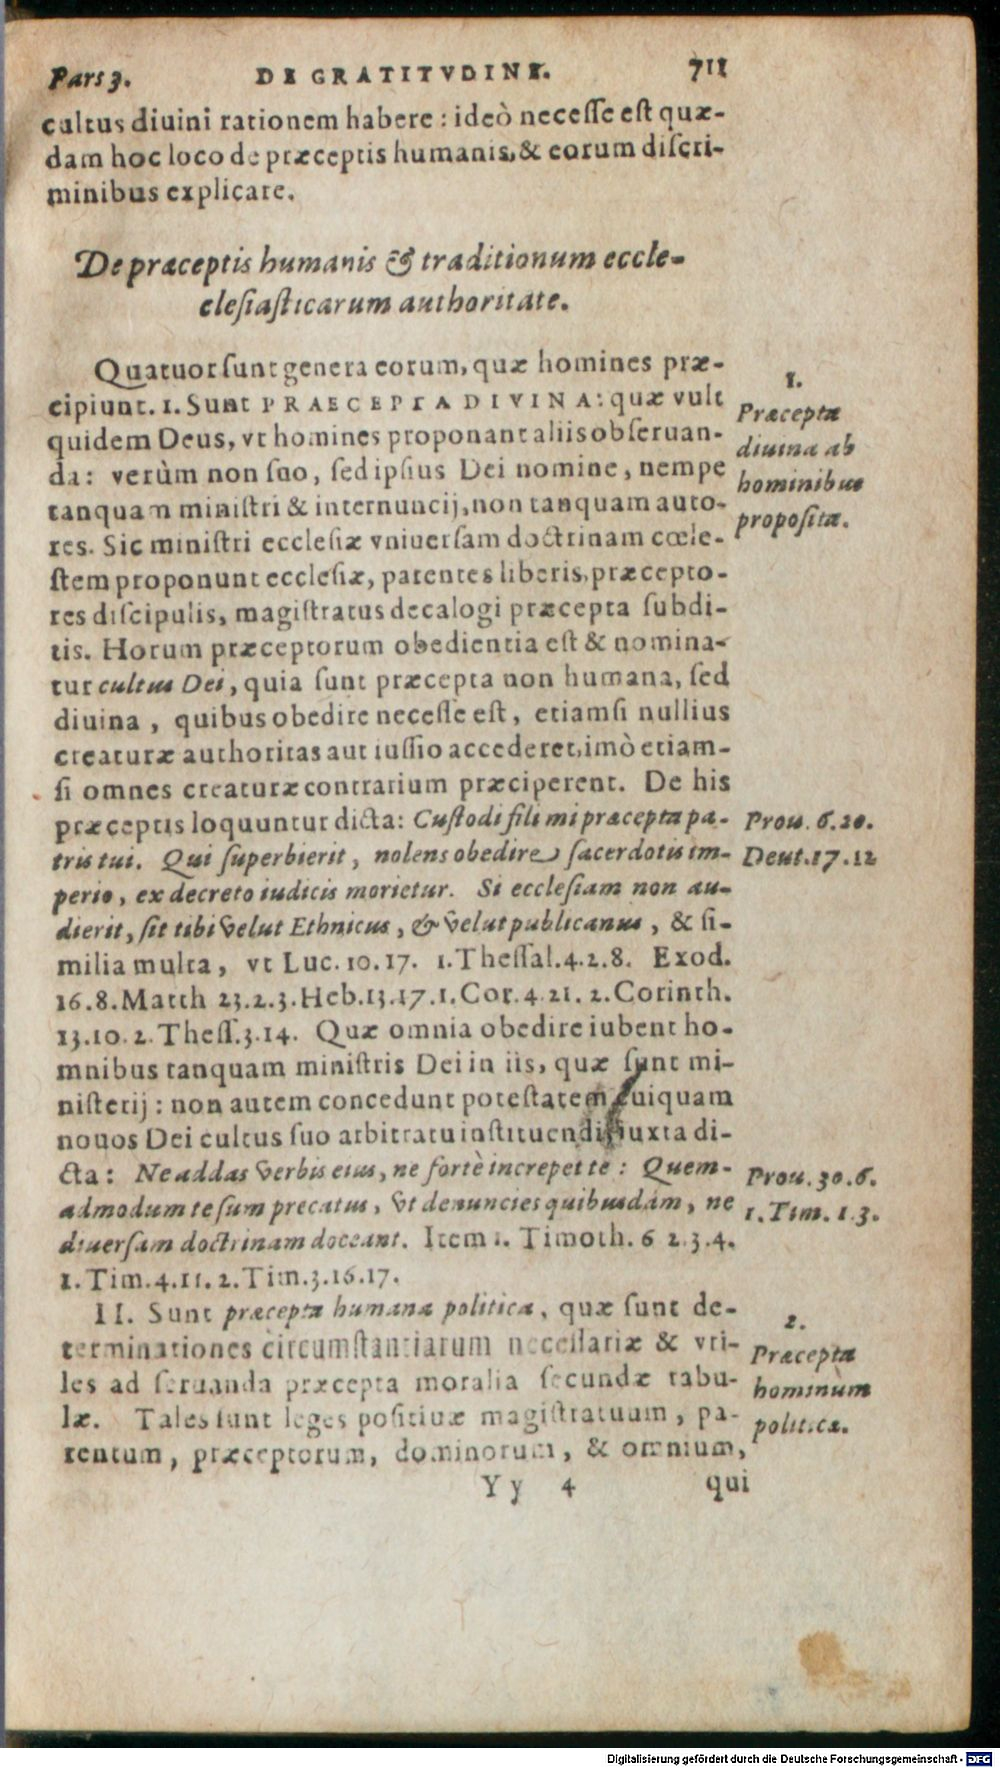 Pars 3. DE GRATITVDINE. 711
cultus diuini rationem habere : ideò necesse est quæ-
dam hoc loco de præceptis humanis, & eorum discri-
minibus explicare.
De præceptis humanis & traditionum eccle-
elesiasticarum authoritate.
Quatuor sunt genera eorum, quæ homines præ-
cipiunt. 1. Sunt PRAECEPTA DIVINA: quæ vult
quidem Deus, vt homines proponant aliis obseruan-
da: verùm non suo, sed ipsius Dei nomine, nempe
tanquam ministri & internuncij, non tanquam auto-
res. Sic ministri ecclesiæ vniuersam doctrinam cœle-
stem proponunt ecclesiæ, parentes liberis, præcepto-
res discipulis, magistratus decalogi præcepta subdi-
tis. Horum præceptorum obedientia est & nomina-
tur cultus Dei, quia sunt præcepta non humana, sed
diuina, quibus obedire necesse est, etiamsi nullius
creaturæ authoritas aut iussio accederet, imò etiam-
si omnes creaturæ contrarium præciperent. De his
præceptis loquuntur dicta: Custodi fili mi præcepta pa-
tris tui. Qui superbierit, nolens obedire sacerdotis im-
perio, ex decreto iudicis morietur. Si ecclesiam non au-
dierit, sit tibi velut Ethnicus, & velut publicanus, & si-
milia multa, vt Luc. 10. 17. 1. Thessal. 4. 2. 8. Exod.
16. 8. Matth 23. 2. 3. Heb. 13. 17. 1. Cor. 4. 21. 2. Corinth.
13. 10. 2. Thess. 3. 14. Quæ omnia obedire iubent ho-
mnibus tanquam ministris Dei in iis, quæ sunt mi-
nisterij : non autem concedunt potestatem cuiquam
nouos Dei cultus suo arbitratu instituendi iuxta di-
cta: Ne addas verbis eius, ne fortè increpet te: Quem-
admodum te sum precatus, vt denuncies quibusdam, ne
diuersam doctrinam doceant. Item 1. Timoth. 6 2. 3. 4.
1. Tim. 4. 11. 2. Tim. 3. 16. 17.
II. Sunt præcepta humana politica, quæ sunt de-
terminationes circumstantiarum necessariæ & vti-
les ad seruanda præcepta moralia secundæ tabu-
læ. Tales sunt leges positiuæ magistratuum, pa-
rentum, præceptorum, dominorum, & omnium,
Yy 4 qui
1.
Præcepta
diuina ab
hominibus
proposita.
Prou. 6. 20.
Deut. 17. 12
Prou. 30. 6.
1. Tim. 1. 3.
2.
Præcepta
hominum
politica.
Digitalisierung gefördert durch die Deutsche Forschungsgemeinschaft - DFG